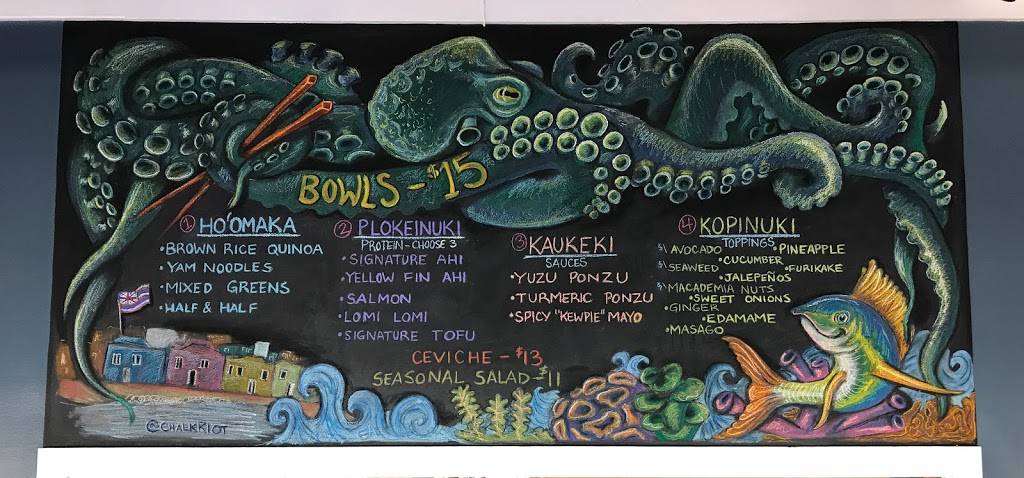 BOWLS - $15
① HO'OMAKA
• BROWN RICE QUINOA
• YAM NOODLES
• MIXED GREENS
• HALF & HALF
② PLOKEINUKI
PROTEIN - CHOOSE 3
• SIGNATURE AHI
• YELLOW FIN AHI
• SALMON
• LOMI LOMI
• SIGNATURE TOFU
③ KAUKEKI
SAUCES
• YUZU PONZU
• TURMERIC PONZU
• SPICY "KEWPIE" MAYO
④ KOPINUKI
TOPPINGS
$1 AVOCADO • PINEAPPLE
• CUCUMBER
$1 SEAWEED • FURIKAKE
• JALEPEÑOS
$1 MACADEMIA NUTS
• SWEET ONIONS
GINGER
• EDAMAME
• MASAGO
CEVICHE - $13
SEASONAL SALAD - $11
@CHALKRIOT